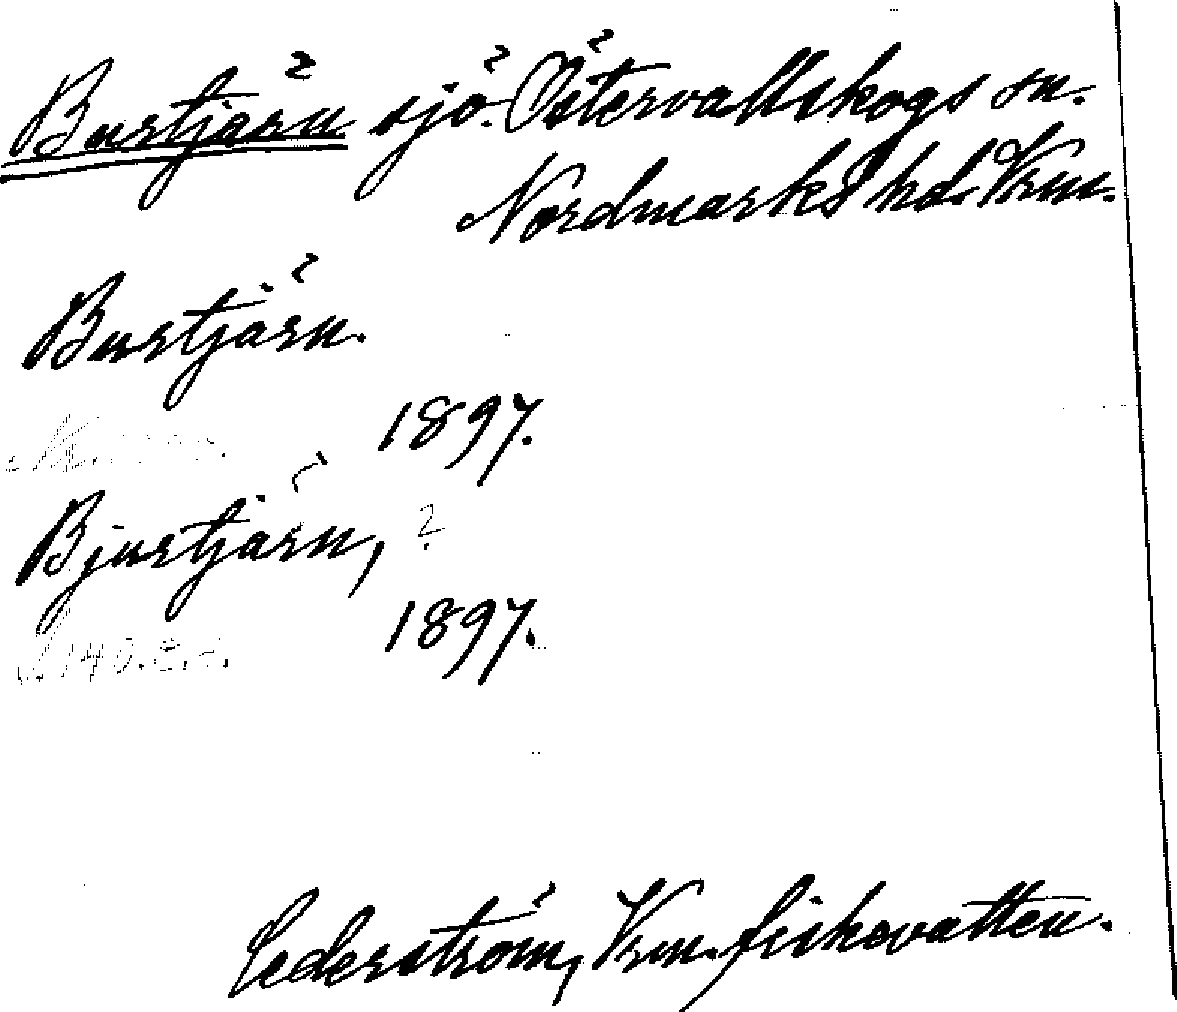 Burtjärn sjö. Östervallskogs sn.
Nordmarks hd. Vrm.
Burtjärn.
1897.
Bjurtjärn, ?
1897.
Cederström, Vrm. fiskevatten.